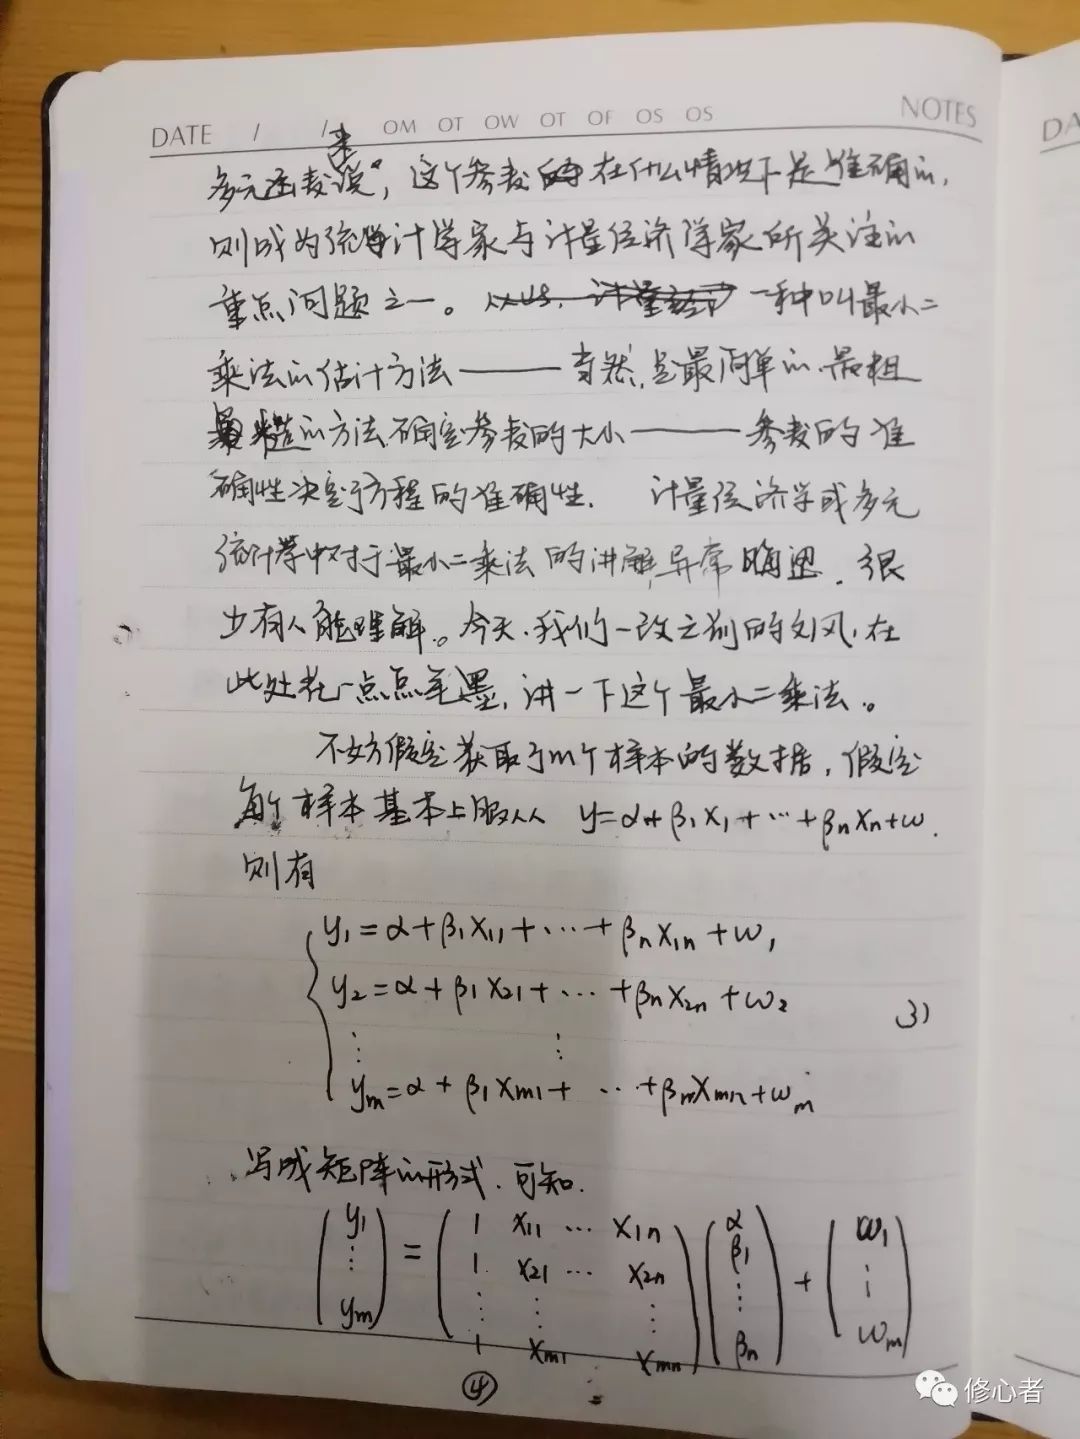 DATE / / OM OT OW OT OF OS OS NOTES
DA
多元函数来说，这个参数在什么情况下是准确的，
则成为统计学家与计量经济学家所关注的
重点问题之一。一种叫最小二
乘法的估计方法——当然，是最简单的、最粗
糙的方法，确定参数的大小——参数的准
确性决定了方程的准确性. 计量经济学或多元
统计学中对于最小二乘法的讲解异常晦涩，很
少有人能理解。今天，我们一改之前的文风，在
此处花一点点笔墨，讲一下这个最小二乘法。
不妨假定获取了m个样本的数据，假定
每个样本基本上服从 y=α+β₁x₁+⋯+βₙxₙ+ω.
则有
y₁=α+β₁x₁₁+⋯+βₙx₁ₙ+ω₁
y₂=α+β₁x₂₁+⋯+βₙx₂ₙ+ω₂ 3)
⋮ ⋮
yₘ=α+β₁xₘ₁+⋯+βₘxₘₙ+ωₘ
写成矩阵的形式，可知.
(y₁ ⋮ yₘ) = (1 x₁₁ ⋯ x₁ₙ 1 x₂₁ ⋯ x₂ₙ ⋮ ⋮ ⋮ 1 xₘ₁ xₘₙ) (α β₁ ⋮ βₙ) + (ω₁ ⋮ ωₘ)
④
修心者